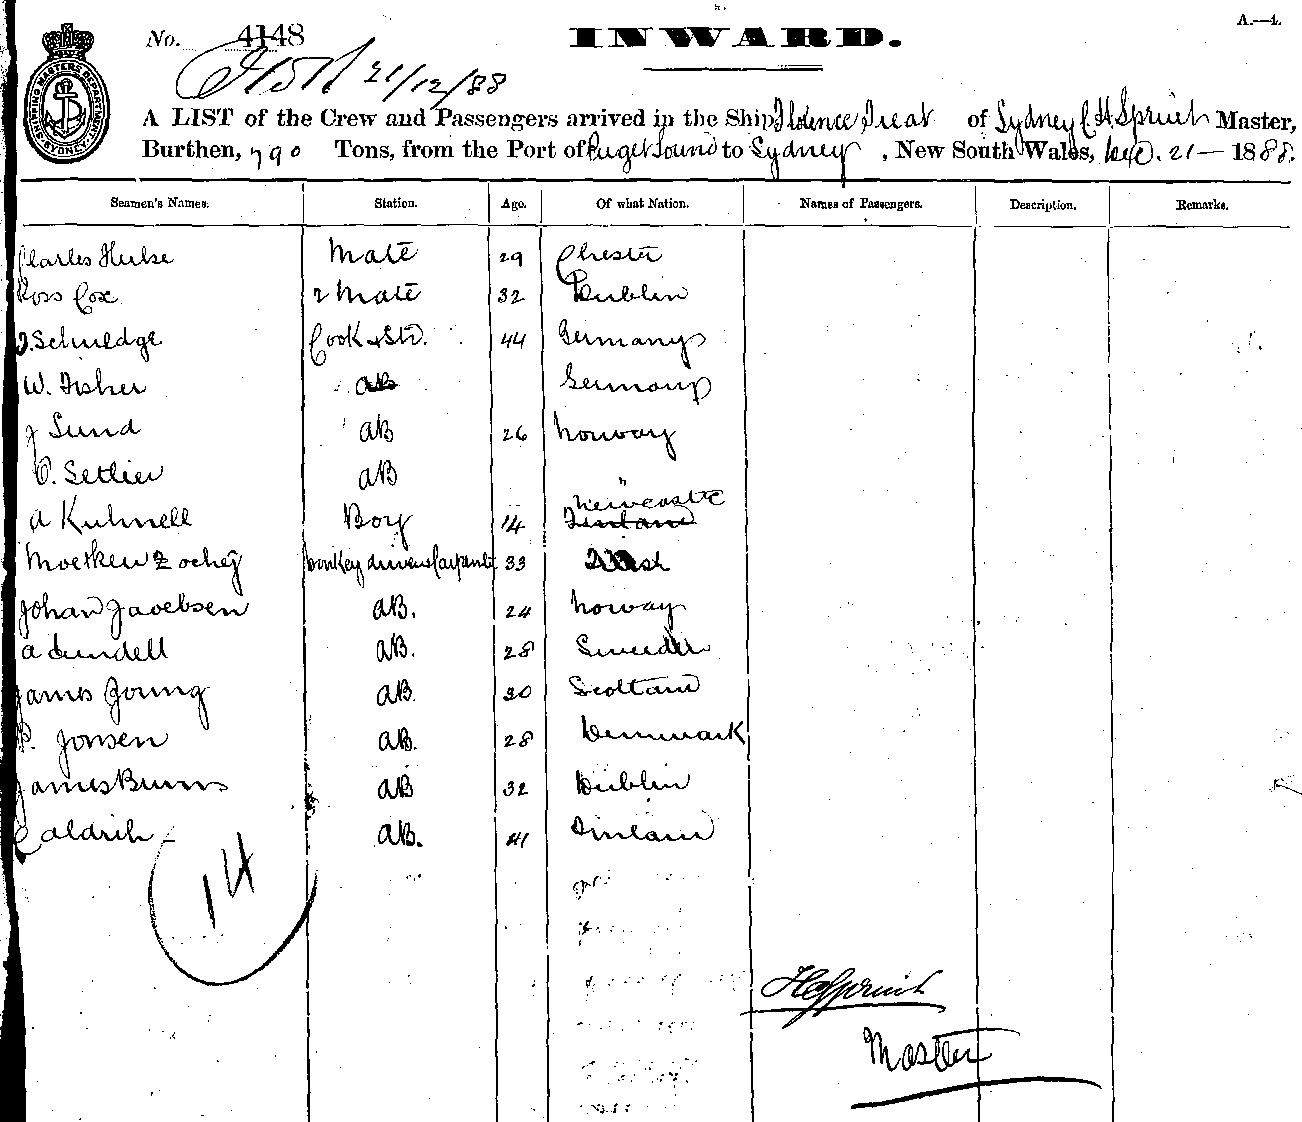 A.—4.
No. 4148
INWARD.
21/12/88
SHIPPING MASTERS DEPARTMENT SYDNEY
A LIST of the Crew and Passengers arrived in the Ship Florence Treat of Sydney C H Spruit Master,
Burthen, 790 Tons, from the Port of Puget Sound to Sydney, New South Wales, Dec. 21 — 1888.
Seamen's Names. Station. Age. Of what Nation. Names of Passengers. Description. Remarks.
Charles Hulse Mate 29 Chester
Ross Cox 2 Mate 32 Dublin
Schmedge Cook & Std. 44 Germany
W. Fisher AB Germany
J Sund AB 26 Norway
O. Setlier AB "
A Kuhnell Boy 14 Newcastle Finland
Moetken Zochey Donkey driver Carpenter 33
Johan Jacobsen AB. 24 Norway
A Lundell AB. 28 Sweden
James Young AB. 30 Scotland
P. Jonsen AB. 28 Denmark
James Burns AB 32 Dublin
C Aldrih AB. 41 Finland
14
H C Spruit
Master